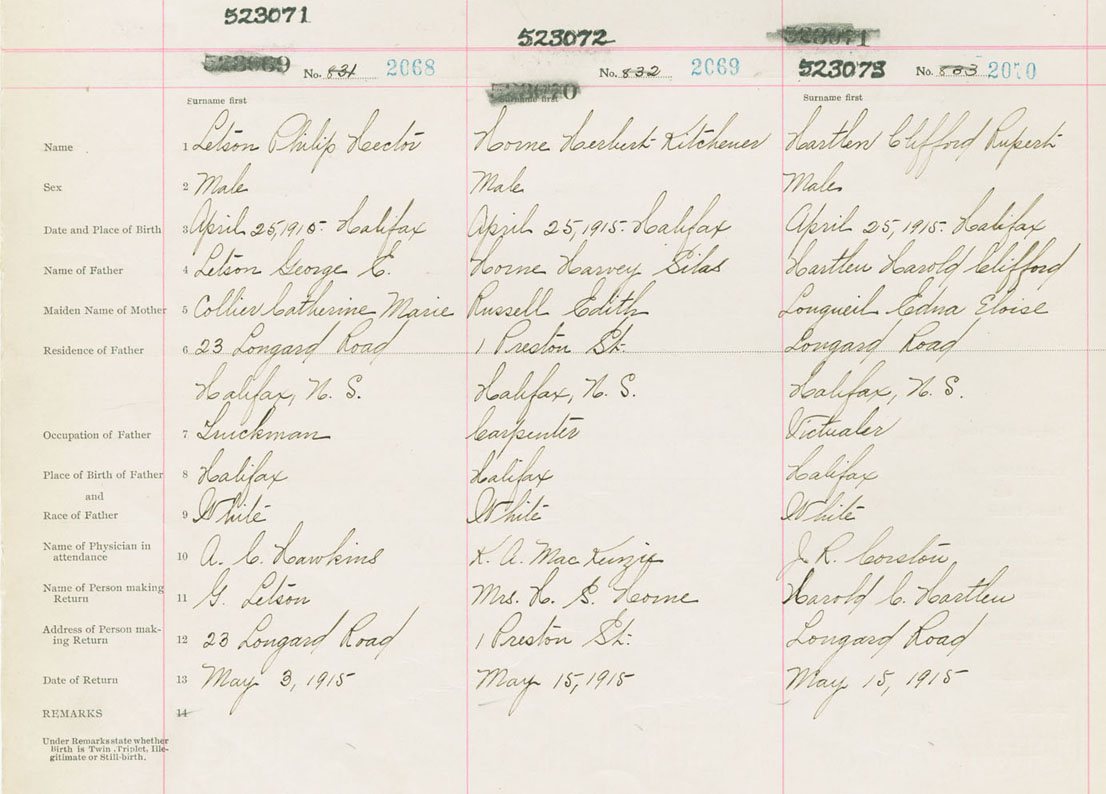 523071
523072
523071
523069 No. 831 2068
No. 832 2069
523073 No. 833 2070
523070
Surname first
Surname first
Surname first
Name 1 Letson Philip Hector Horne Herbert Kitchener Hartlen Clifford Rupert
Sex 2 Male Male Male
Date and Place of Birth 3 April 25, 1915 - Halifax April 25, 1915 - Halifax April 25, 1915 - Halifax
Name of Father 4 Letson George E. Horne Harvey Silas Hartlen Harold Clifford
Maiden Name of Mother 5 Collier Catherine Marie Russell Edith Longueil Edna Eloise
Residence of Father 6 23 Longard Road 1 Preston St. Longard Road
Halifax, N. S. Halifax, N. S. Halifax, N. S.
Occupation of Father 7 Truckman Carpenter Victualer
Place of Birth of Father 8 Halifax Halifax Halifax
and
Race of Father 9 White White White
Name of Physician in
attendance 10 A. C. Hawkins K. A. MacKenzie J. R. Corston
Name of Person making
Return 11 G. Letson Mrs. H. S. Horne Harold C. Hartlen
Address of Person mak-
ing Return 12 23 Longard Road 1 Preston St. Longard Road
Date of Return 13 May 3, 1915 May 15, 1915 May 15, 1915
REMARKS 14
Under Remarks state whether
Birth is Twin, Triplet, Ille-
gitimate or Still-birth.